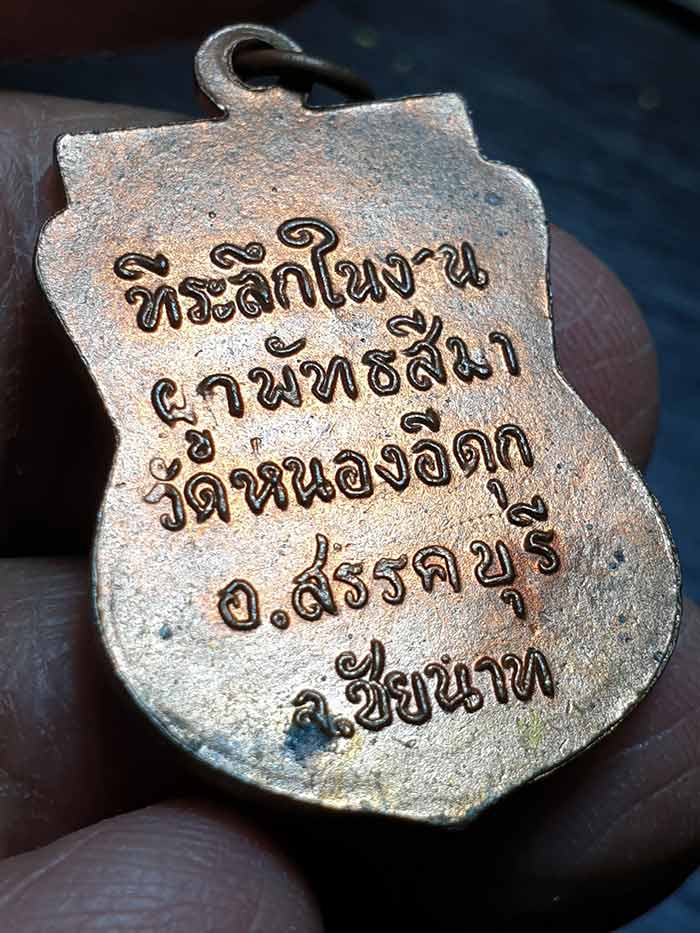 ที่ระลึกในงาน
ผูกพัทธสีมา
วัดหนองอีดุก
อ.สรรคบุรี
จ.ชัยนาท